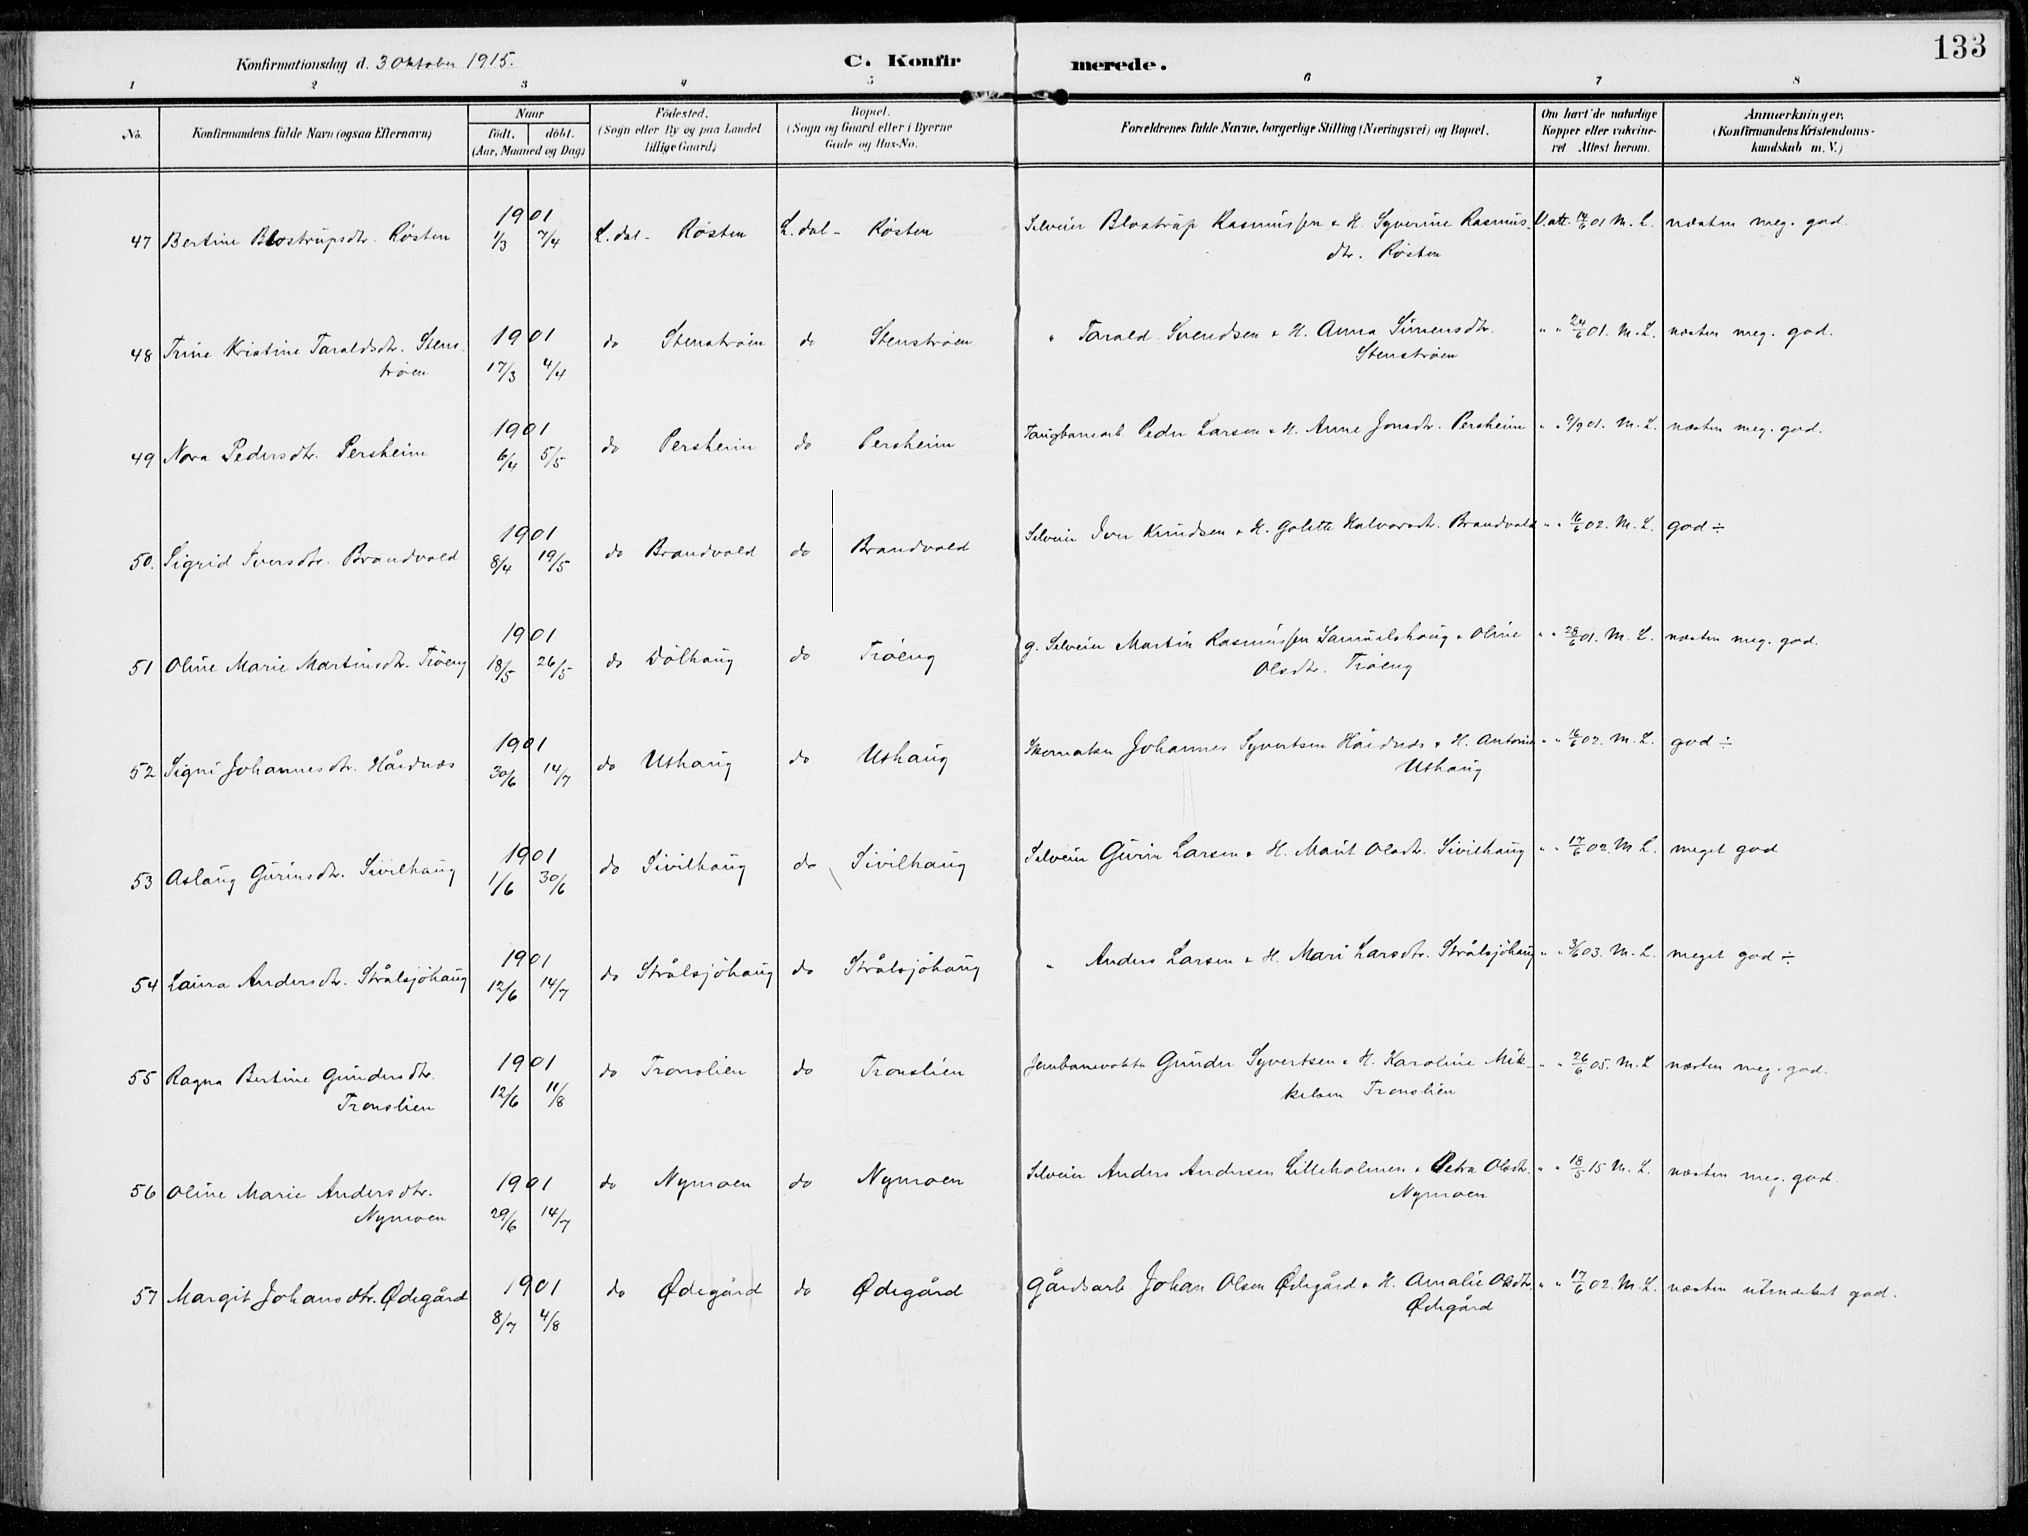 133
Konfirmationsdag d. 3 Oktober 1915.
C. Konfirmerede.
1 2 3 4 5 6 7 8
No. Konfirmandens fulde Navn (ogsaa Efternavn)
Naar
født. døbt.
(Aar, Maaned og Dag)
Fødested.
(Sogn eller By og paa Landet
tillige Gaard)
Bopæl.
(Sogn og Gaard eller i Byerne
Gade og Hus-No.
Forældrenes fulde Navne, borgerlige Stilling (Næringsvei) og Bopæl.
Om havt de naturlige
Kopper eller vakcine-
ret Attest herom.
Anmærkninger,
(Konfirmandens Kristendoms-
kundskab m. V.)
47 Bertine Blostrupsdtr. Røsten 1901 1/3 7/4 L.dal - Røsten L.dal - Røsten Selveier Blostrup Rasmussen & H. Syverine Rasmus- V.att. 14/6 01 M. L. næsten meg. god.
dtr. Røsten
48 Trine Kristine Taraldsdtr. Stens 1901 do Stenstrøen do Stenstrøen " Tarald Svendsen & H. Anna Simensdtr. " " 24/6 01. M. L. næsten meg. god.
trøen 17/3 4/4 Stenstrøen
49 Nora Pedersdtr. Persheim 1901 6/4 5/5 do Persheim do Persheim Taugbanearb. Peder Larsen & H. Anne Jonsdtr. Persheim " " 9/9 01. M. L. næsten meg. god.
50. Sigrid Iversdtr. Brandvold 1901 8/4 19/5 do Brandvold do Brandvold Selveier Iver Knudsen & H. Golette Halvorsdtr. Brandvold " " 16/6 02. M. L. god ÷
51 Oline Marie Martinsdtr. Trøeng 1901 18/5 26/5 do Dølhaug do Trøeng g. Selveier Martin Rasmussen Samuelshaug & Oline " " 28/6 01. M. L. næsten meg. god.
Olsdtr. Trøeng
52 Signi Johannesdtr. Håidnæs 1901 30/6 14/7 do Uthaug do Uthaug Skomaker Johannes Syvertsen Håidnæs & H. Antonie " " 16/6 02. M. L. god ÷
Uthaug
53 Aslaug Gurinsdtr. Sivilhaug 1901 1/6 30/6 do Sivilhaug do Sivilhaug Selveier Gurin Larsen & H. Marit Olsdtr. Sivilhaug " " 17/6 02. M. L. meget god
54 Laura Andersdtr. Strålsjøhaug 1901 12/6 14/7 do Strålsjøhaug do Strålsjøhaug " Anders Larsen & H. Mari Larsdtr. Strålsjøhaug " " 3/6 03. M. L. meget god ÷
55 Ragna Bertine Gundersdtr. 1901 do Tronslien do Tronslien Jernbanevokter Gunder Syvertsen & H. Karoline Mik- " " 26/6 05. M. L næsten meg. god.
Tronslien 12/6 11/8 kelsen Tronslien
56 Oline Marie Andersdtr. 1901 do Nymoen do Nymoen Selveier Anders Andersen Lilleholmen & Petra Olsdtr. " " 18/5 15 M. L. næsten meg. god.
Nymoen 29/6 14/7 Nymoen
57 Margit Johansdtr. Ødegård 1901 8/7 4/8 do Ødegård do Ødegård Gårdsarb Johan Olsen Ødegård & H. Amalie Olsdtr. " " 17/6 02. M. L. næsten utmerket god.
Ødegård